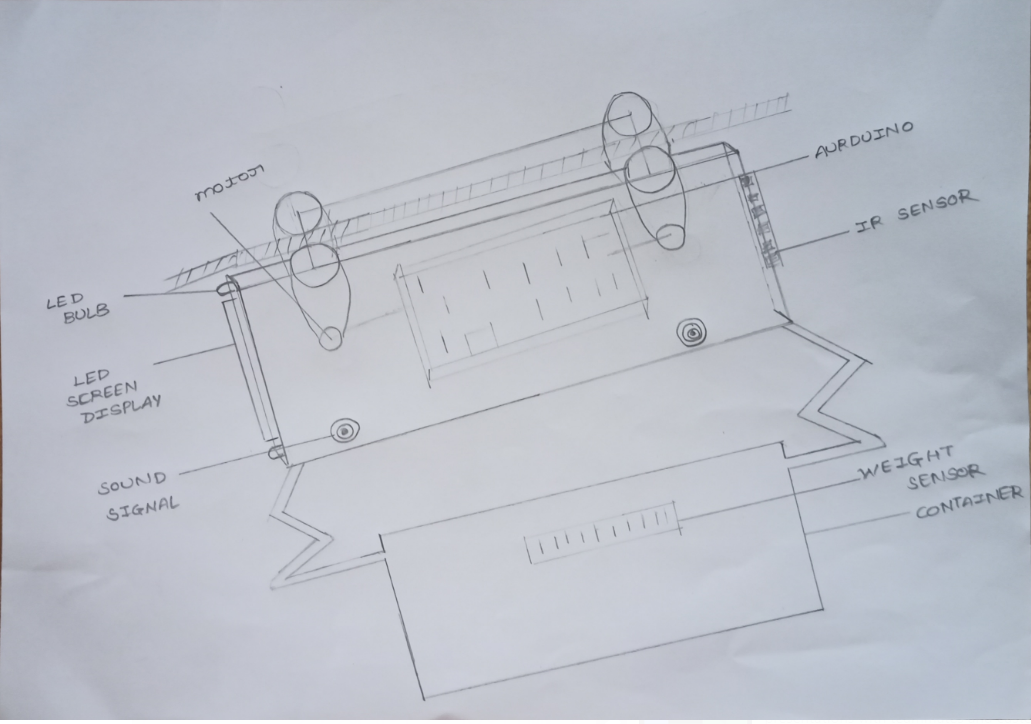 MOTOR
AURDUINO
IR SENSOR
LED
BULB
LED
SCREEN
DISPLAY
SOUND
SIGNAL
WEIGHT
SENSOR
CONTAINER